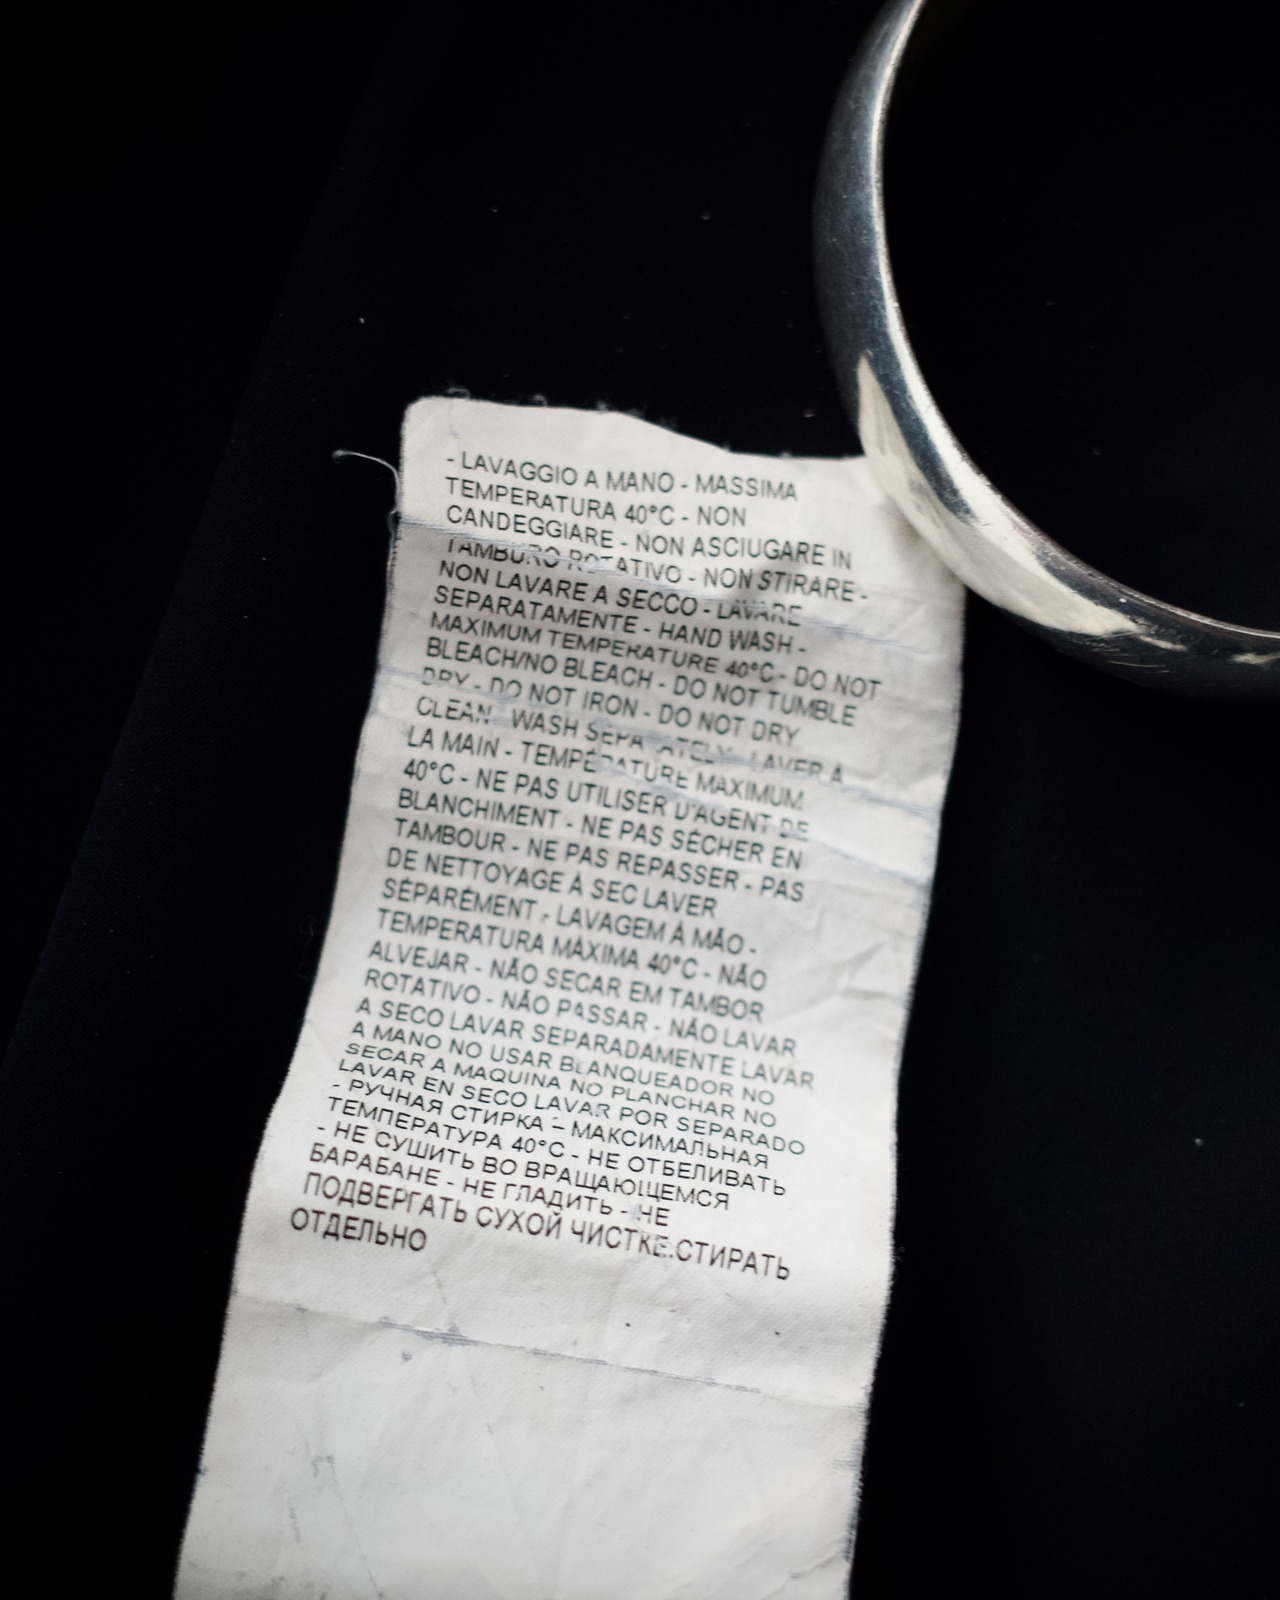 - LAVAGGIO A MANO - MASSIMA
TEMPERATURA 40°C - NON
CANDEGGIARE - NON ASCIUGARE IN
TAMBURO ROTATIVO - NON STIRARE -
NON LAVARE A SECCO - LAVARE
SEPARATAMENTE - HAND WASH -
MAXIMUM TEMPERATURE 40°C - DO NOT
BLEACH/NO BLEACH - DO NOT TUMBLE
DRY - DO NOT IRON - DO NOT DRY
CLEAN WASH SEPARATELY - LAVER À
LA MAIN - TEMPÉRATURE MAXIMUM
40°C - NE PAS UTILISER D'AGENT DE
BLANCHIMENT - NE PAS SÉCHER EN
TAMBOUR - NE PAS REPASSER - PAS
DE NETTOYAGE À SEC LAVER
SÉPARÉMENT - LAVAGEM À MÃO -
TEMPERATURA MÁXIMA 40°C - NÃO
ALVEJAR - NÃO SECAR EM TAMBOR
ROTATIVO - NÃO PASSAR - NÃO LAVAR
A SECO LAVAR SEPARADAMENTE LAVAR
A MANO NO USAR BLANQUEADOR NO
SECAR A MAQUINA NO PLANCHAR NO
LAVAR EN SECO LAVAR POR SEPARADO
- РУЧНАЯ СТИРКА – МАКСИМАЛЬНАЯ
ТЕМПЕРАТУРА 40°C - НЕ ОТБЕЛИВАТЬ
- НЕ СУШИТЬ ВО ВРАЩАЮЩЕМСЯ
БАРАБАНЕ - НЕ ГЛАДИТЬ - НЕ
ПОДВЕРГАТЬ СУХОЙ ЧИСТКЕ.СТИРАТЬ
ОТДЕЛЬНО